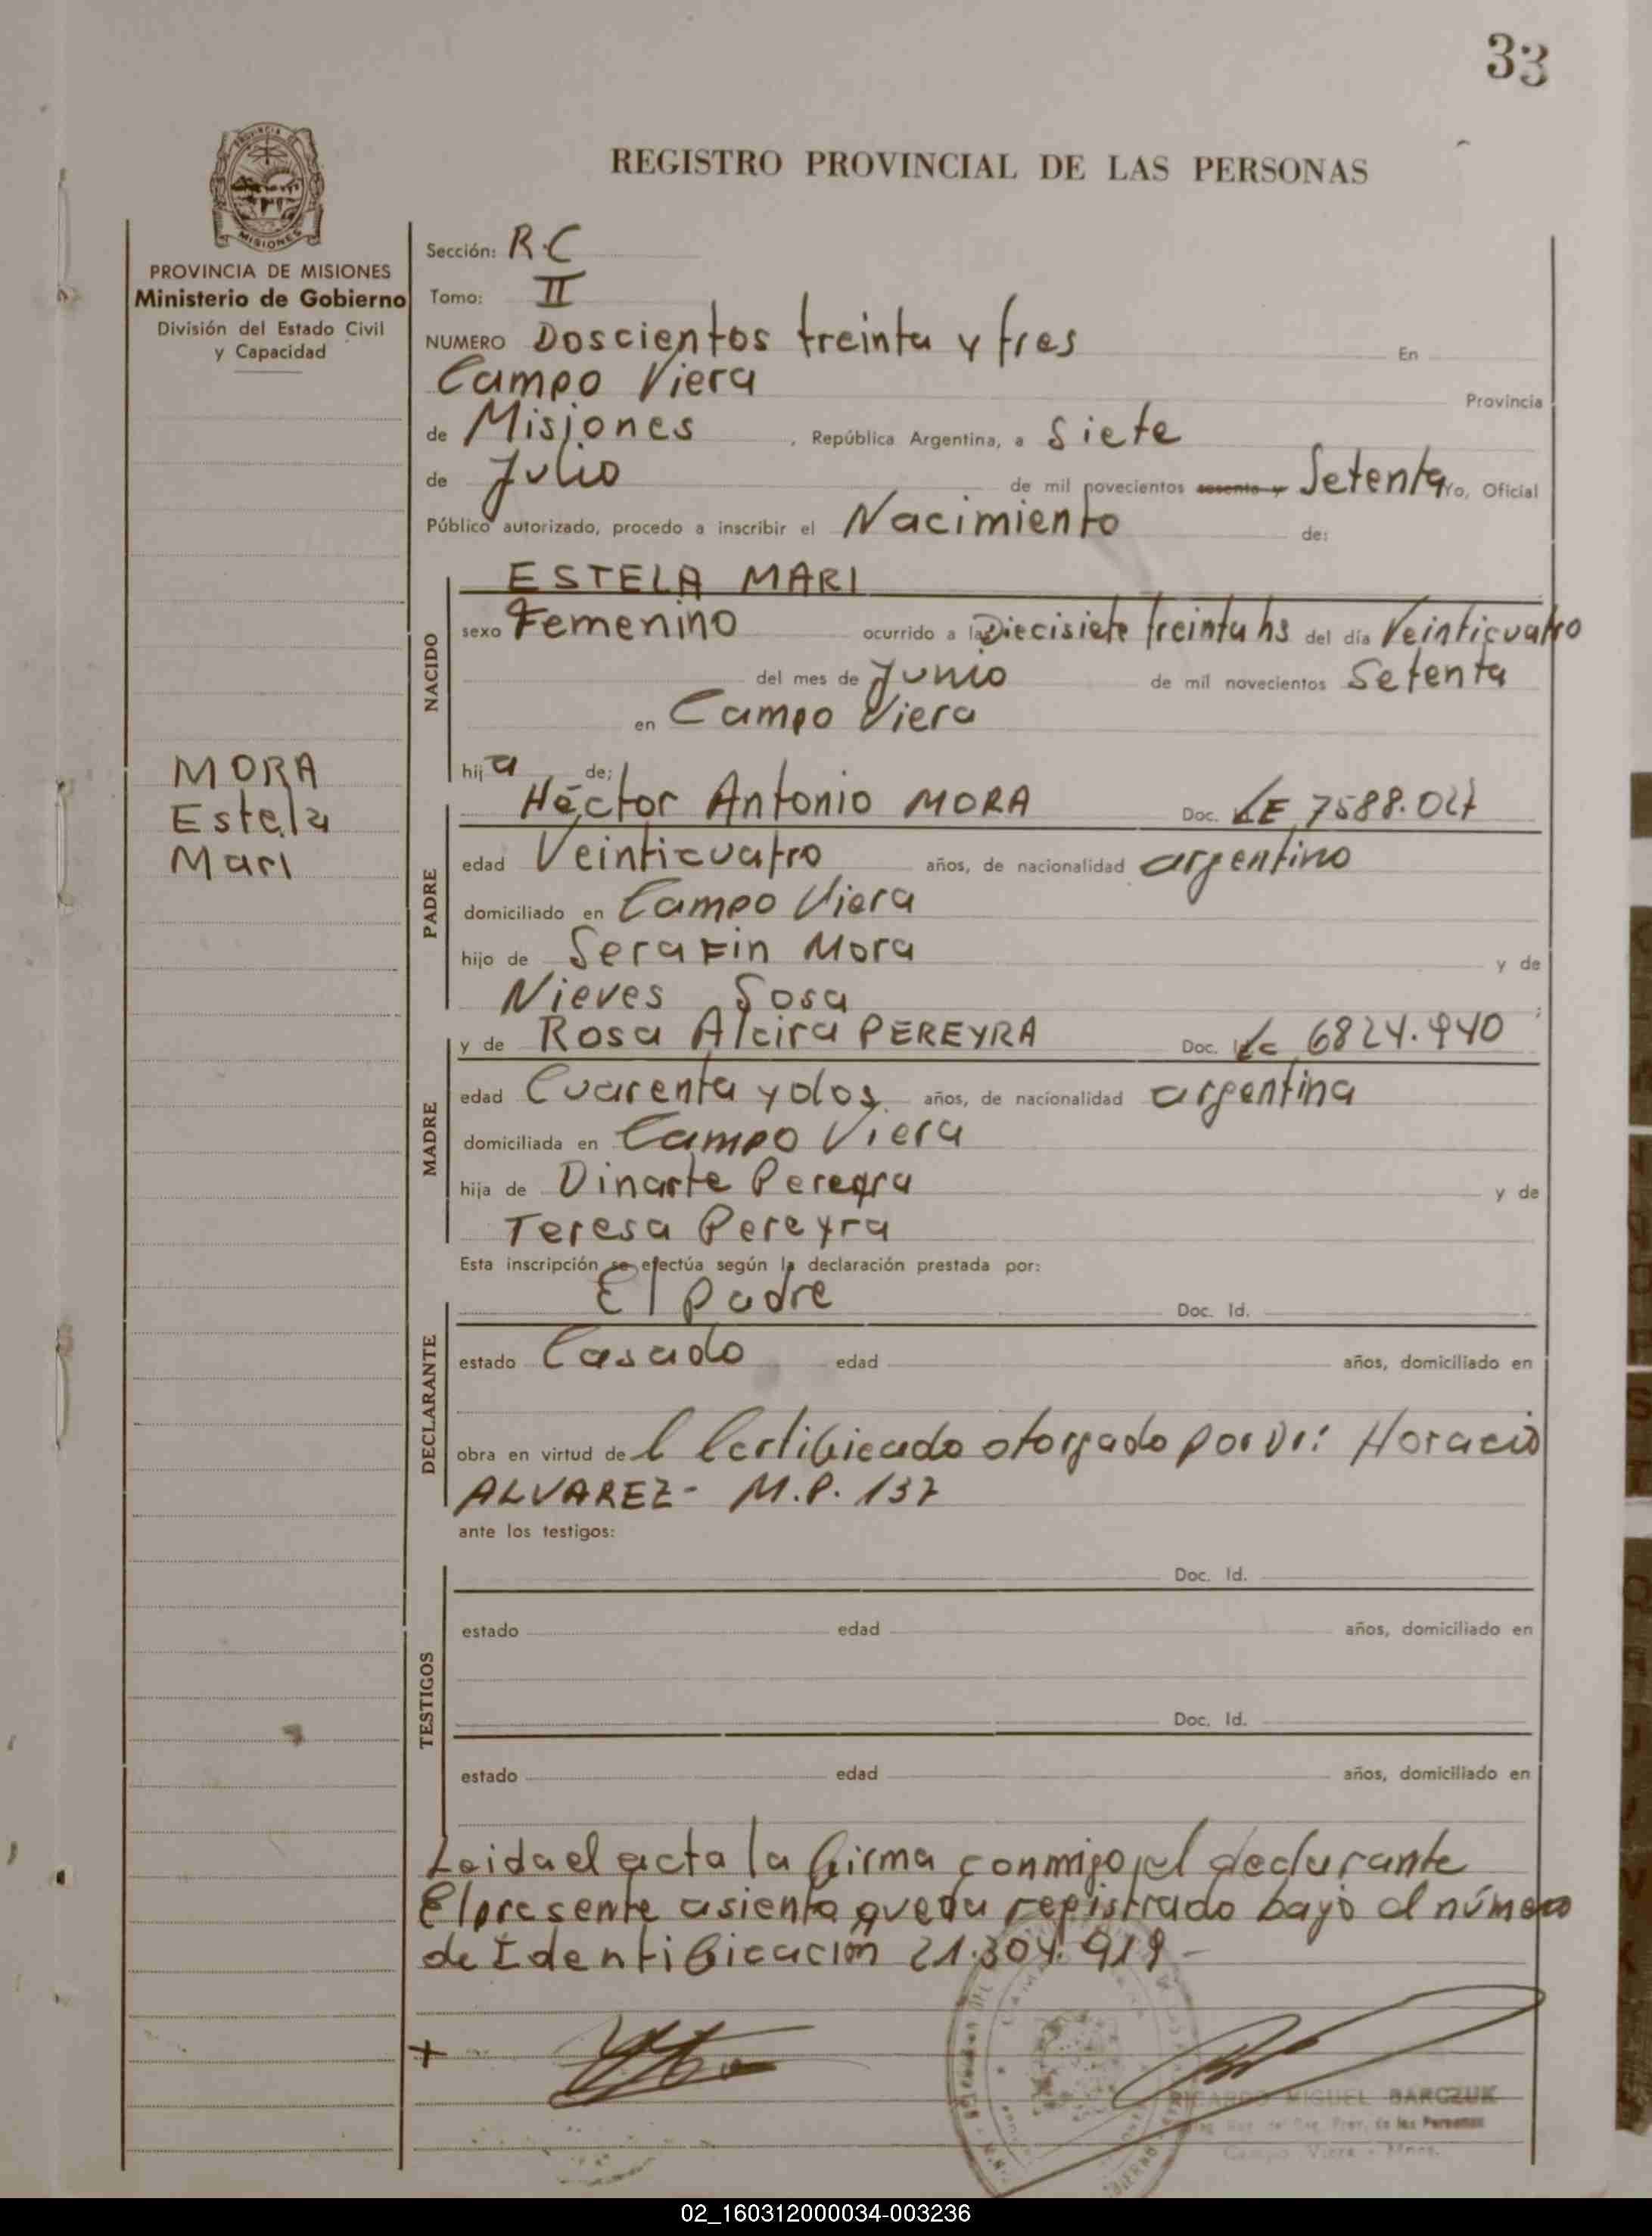 33
REGISTRO PROVINCIAL DE LAS PERSONAS
MISIONES
PROVINCIA DE MISIONES
Ministerio de Gobierno
División del Estado Civil
y Capacidad
Sección: R.C
Tomo: II
NUMERO Doscientos treinta y tres En
Campo Viera Provincia
de Misiones , República Argentina, a Siete
de Julio de mil novecientos sesenta y Setenta Yo, Oficial
Público autorizado, procedo a inscribir el Nacimiento de:
NACIDO
ESTELA MARI
sexo Femenino ocurrido a las Diecisiete treinta hs del día Veinticuatro
del mes de Junio de mil novecientos Setenta
en Campo Viera
hija de:
MORA
Estela
Mari
PADRE
Héctor Antonio MORA Doc. LE 7588.027
edad Veinticuatro años, de nacionalidad argentino
domiciliado en Campo Viera
hijo de Serafin Mora y de
Nieves Sosa
MADRE
y de Rosa Alcira PEREYRA Doc. Lc 6824.940
edad Cuarenta y dos años, de nacionalidad argentina
domiciliada en Campo Viera
hija de Dinarte Pereyra y de
Teresa Pereyra
Esta inscripción se efectúa según la declaración prestada por:
DECLARANTE
El padre Doc. Id.
estado Casado edad años, domiciliado en
obra en virtud del Certificado otorgado por Dr: Horacio
ALVAREZ- M.P. 137
ante los testigos:
TESTIGOS
Doc. Id.
estado edad años, domiciliado en
Doc. Id.
estado edad años, domiciliado en
Leida el acta la firma conmigo, el declarante
El presente asiento queda registrado bajo el número
de Identificación 21.304.919-
RICARDO MIGUEL BARCZUK
Reg. Prov. de las Personas
Campo Viera - Mnes.
02_160312000034-003236